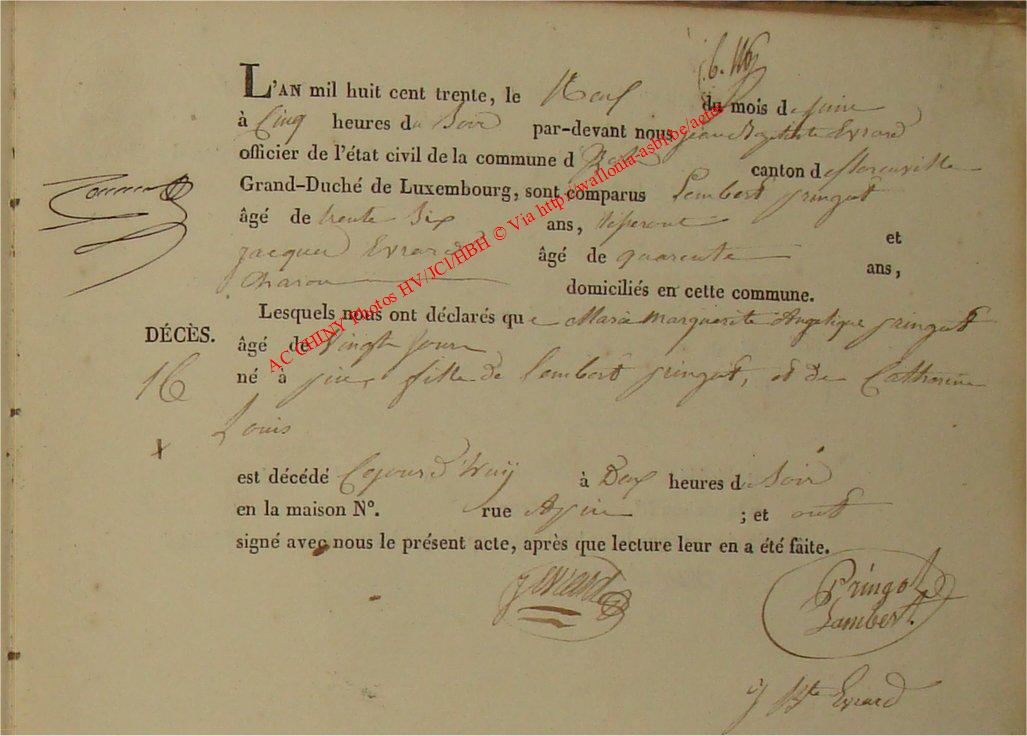 L'AN mil huit cent trente, le Neuf du mois de juin
à Cinq heures du Soir par-devant nous jean Baptiste Evrard
officier de l'état civil de la commune d canton de florenville
Grand-Duché de Luxembourg, sont comparus Lambert pringot
âgé de trente Six ans, tisserant et
jacques Evrard âgé de quarente ans,
Charon domiciliés en cette commune.
Lesquels nous ont déclarés que Marie Marguerite Angelique pringot
DÉCÈS.
âgé de Vingt jours
16
né à fille de lambert pringot, et de Catherine
Louis
X
est décédé Cejourd'huy à Deux heures du Soir
en la maison N°. rue ; et ont
signé avec nous le présent acte, après que lecture leur en a été faite.
J Evrard
Pringot
Lambert
J Bte Evrard
AC CHINY Photos HV/JCl/HBH © Via http://wallonia-asbl.be/actes